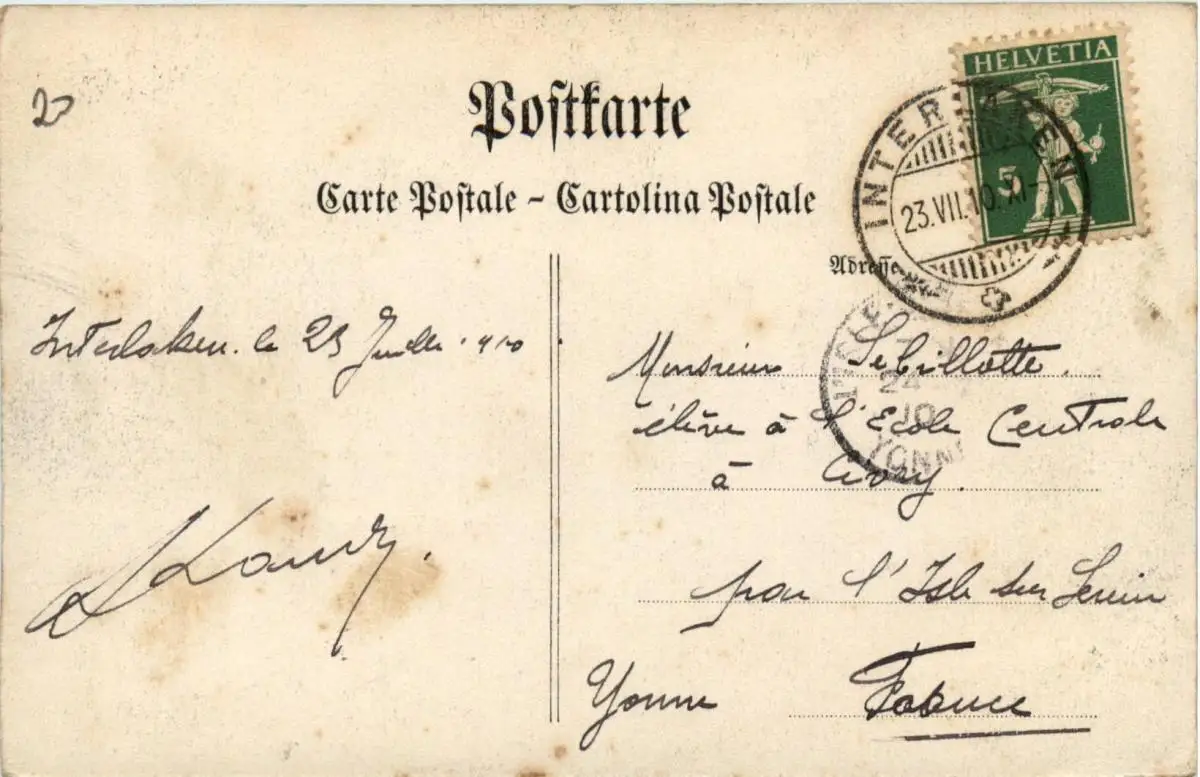 20
HELVETIA
5
INTERLAKEN
23.VII.10.XI-
Postkarte
Carte Postale - Cartolina Postale
Adresse
Interlaken. le 23 Juillet. 1910
Monsieur Lebrillotte.
élève à l'Ecole Centrale
à Civry.
par l'Isle sur Serein
Yonne France
L'ISLE
24
10
YONNE